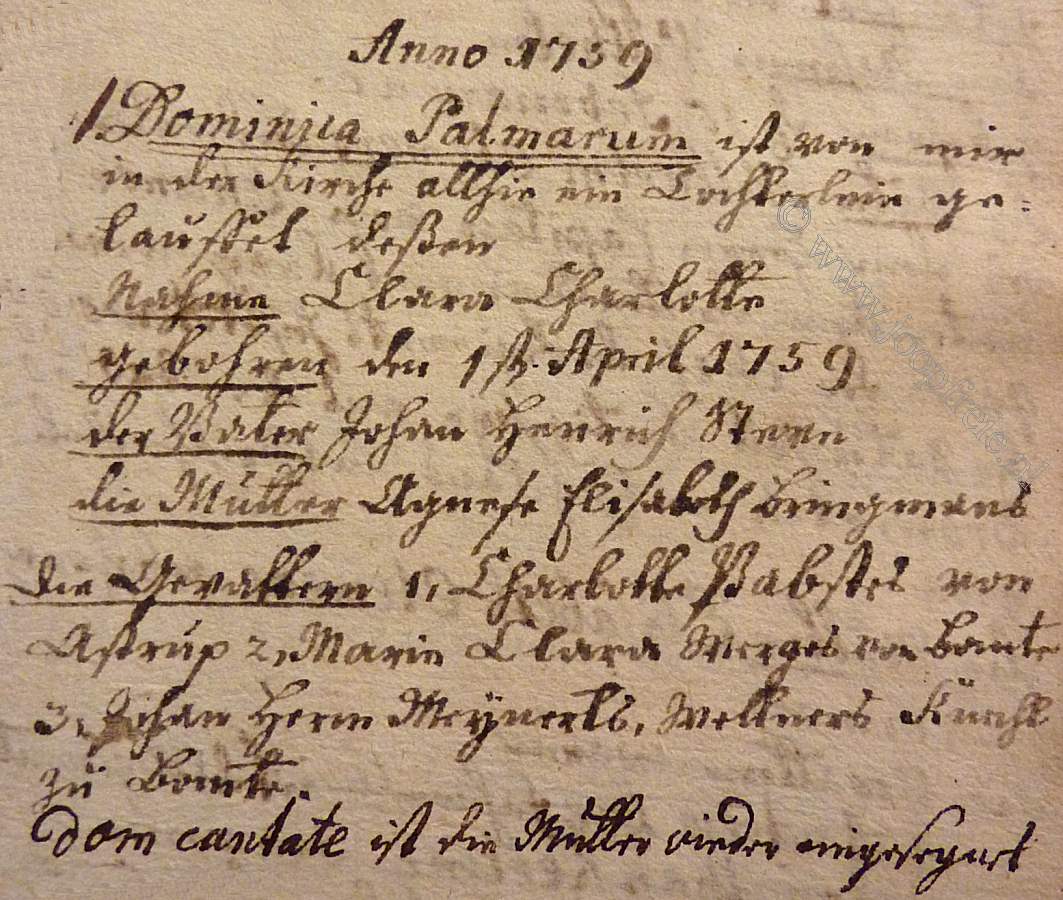 Anno 1759
1 Dominica Palmarum ist von mir
in der Kirche allhie ein Töchterlein ge-
tauffet deßen
Nahme Clara Charlotte
gebohren den 1st. April 1759
der Vater Johan Henrich Steen
die Mutter Agnese Elisabeth Bringmans
die Gevattern 1, Charlotte Pabstes von
Astrup 2, Marie Clara Merges von Bomte
3, Johan Herm Meynerts, Weltners Knecht
zu Bomte.
Dom cantate ist die Mutter wieder eingesegnet